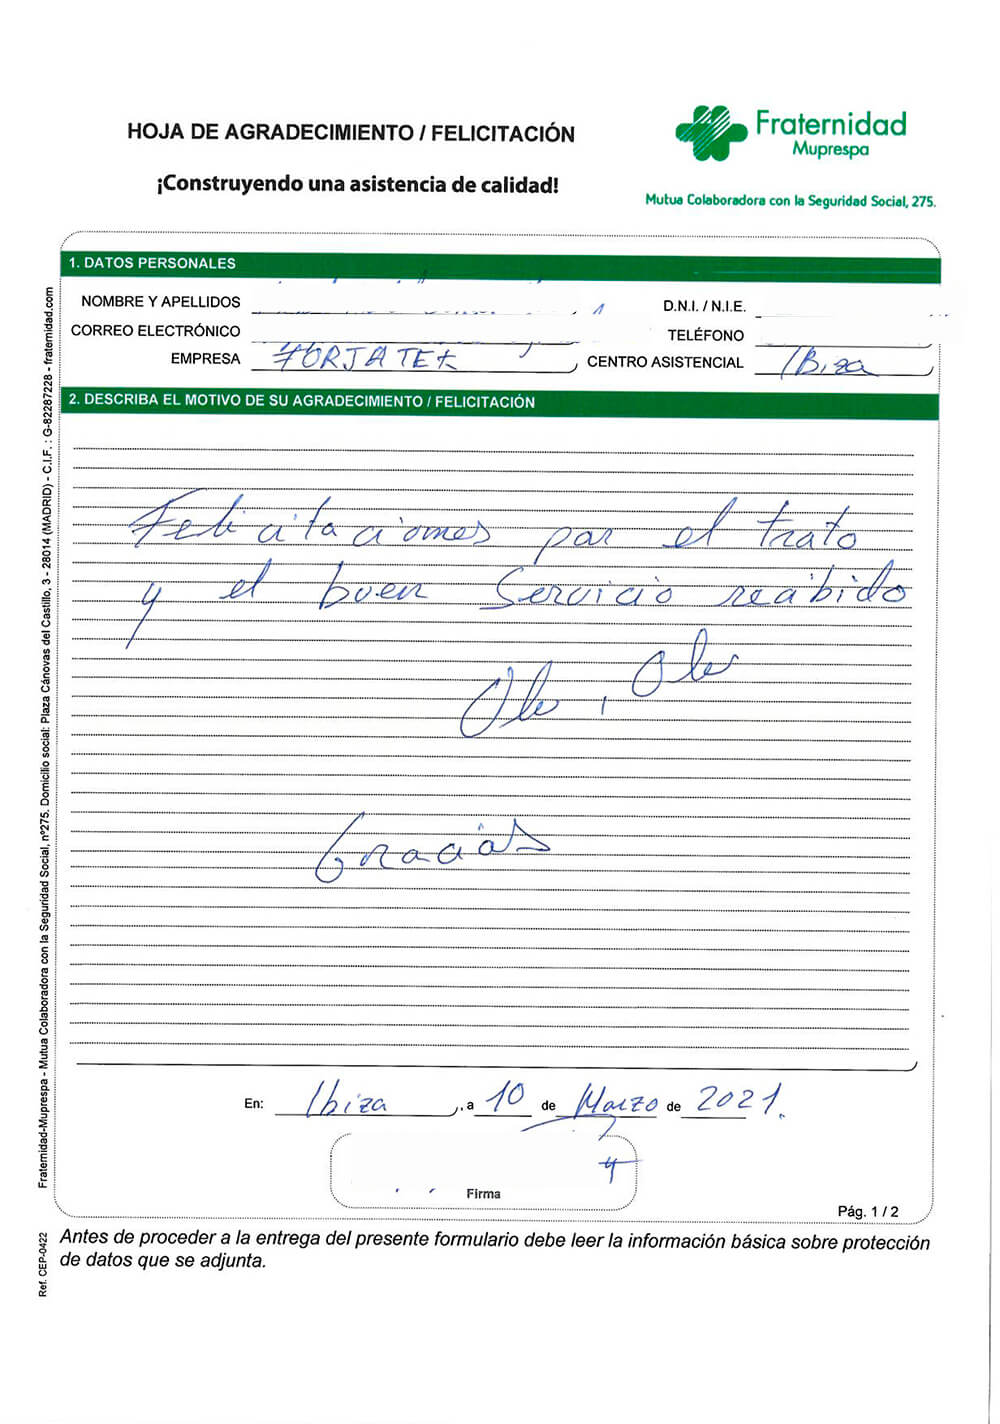 HOJA DE AGRADECIMIENTO / FELICITACIÓN
¡Construyendo una asistencia de calidad!
Fraternidad
Muprespa
Mutua Colaboradora con la Seguridad Social, 275.
1. DATOS PERSONALES
NOMBRE Y APELLIDOS
D.N.I. / N.I.E.
CORREO ELECTRÓNICO
TELÉFONO
EMPRESA FORJATEK
CENTRO ASISTENCIAL IBiza
2. DESCRIBA EL MOTIVO DE SU AGRADECIMIENTO / FELICITACIÓN
Felicitaciones por el trato
y el buen Servicio recibido
Ole, Ole
Gracias
En: Ibiza, a 10 de Marzo de 2021.
Firma
Pág. 1 / 2
Antes de proceder a la entrega del presente formulario debe leer la información básica sobre protección
de datos que se adjunta.
Fraternidad-Muprespa - Mutua Colaboradora con la Seguridad Social, nº275. Domicilio social: Plaza Cánovas del Castillo, 3 - 28014 (MADRID) - C.I.F. : G-82287228 - fraternidad.com
Ref. CEP-0422